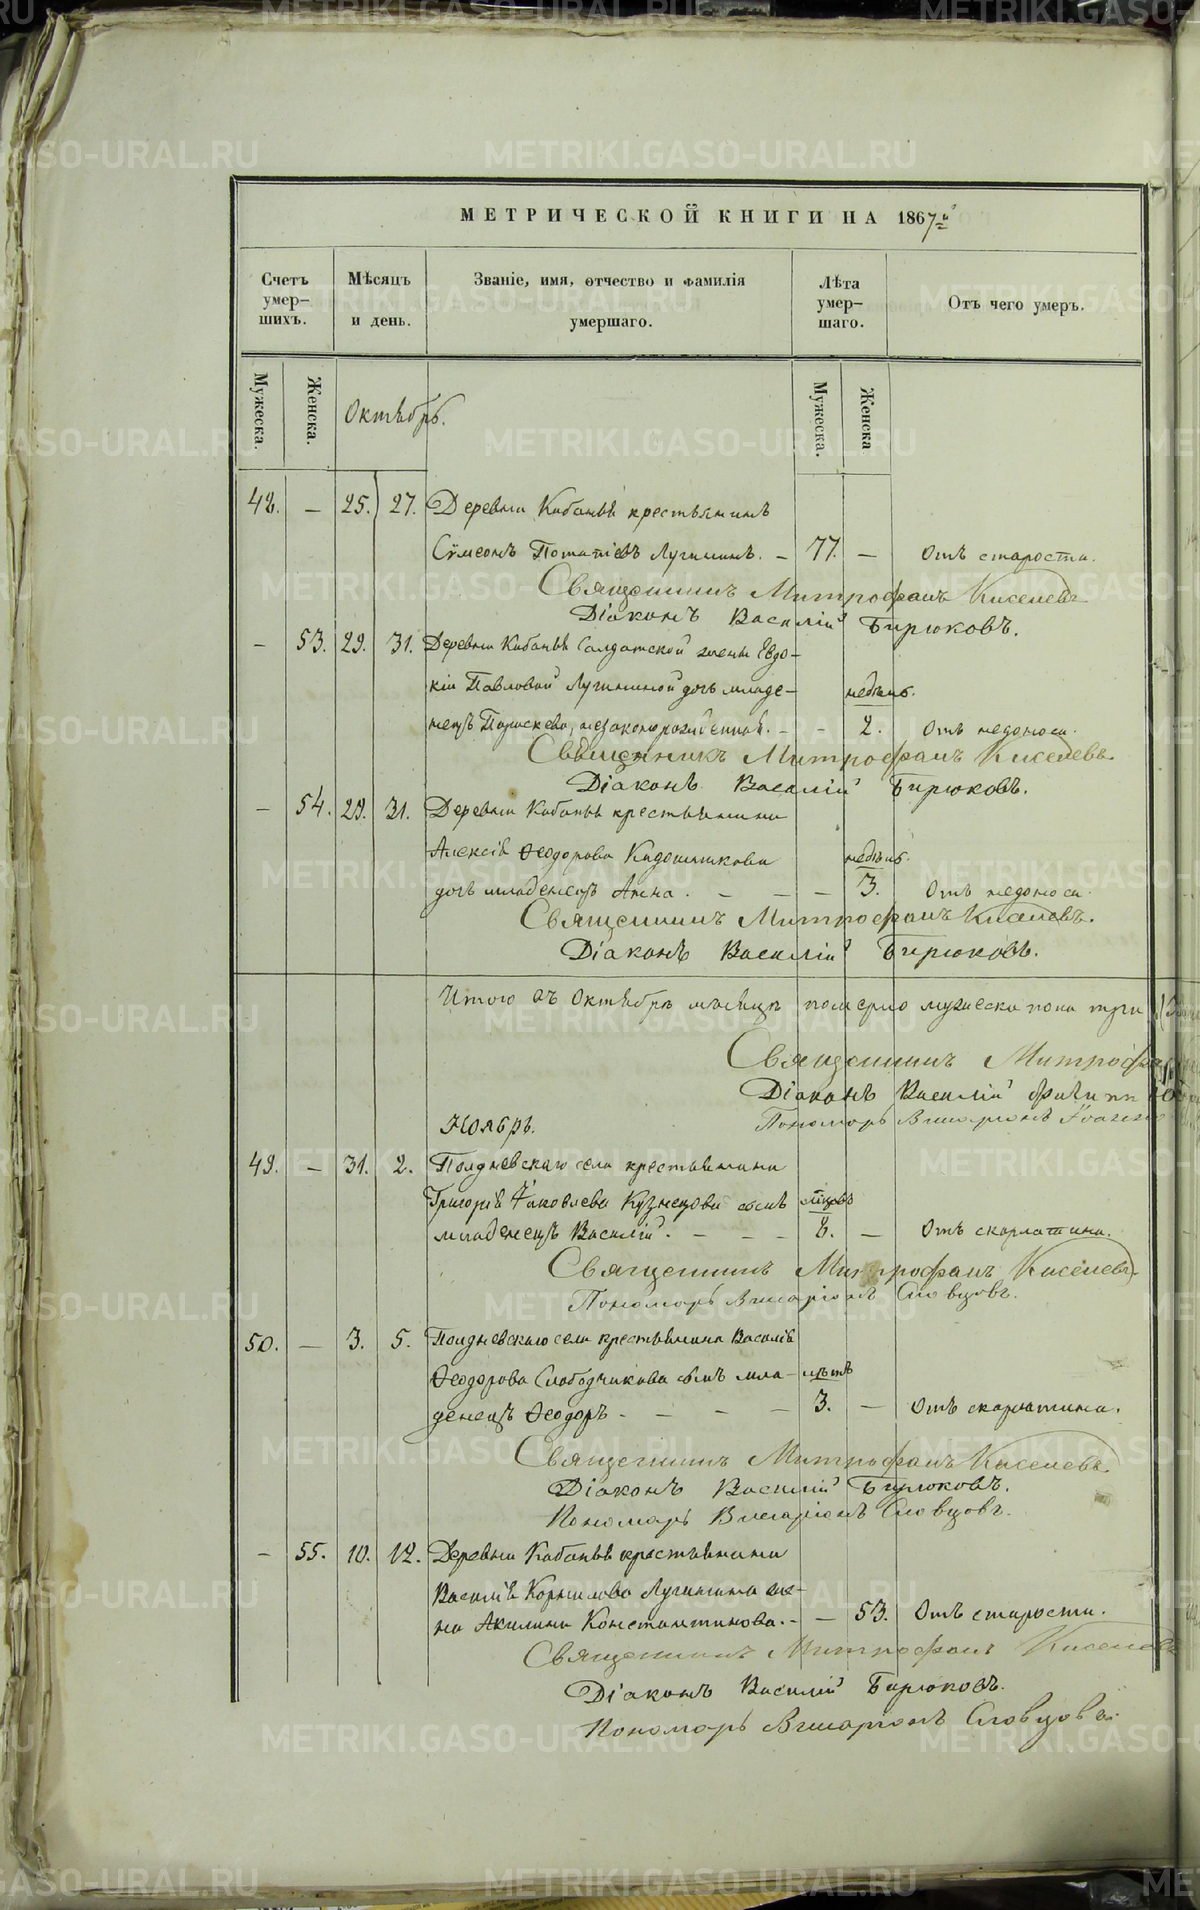 МЕТРИЧЕСКОЙ КНИГИ НА 1867й
Счетъ умер-шихъ.
Мѣсяцъ и день.
Званіе, имя, отчество и фамилія умершаго.
Лѣта умер-шаго.
Отъ чего умеръ.
Мужеска.
Женска.
Октябрь.
Мужеска.
Женска
48. — 25. 27. Деревни Кабаньѣ крестьянинъ
Сѵмеонъ Потапіевъ Лугининъ. — 77. — Отъ старости.
Священникъ Митрофанъ Киселевъ
Діаконъ Василій Бирюковъ.
— 53. 29. 31. Деревни Кабаньѣ Солдатской жены Евдо-
кіи Павловой Лугининой дочь младе- недѣль.
нецъ Параскева, незаконорожденная. — — 2. Отъ недоноса.
Священникъ Митрофанъ Киселевъ.
Діаконъ Василій Бирюковъ.
— 54. 29. 31. Деревни Кабаньѣ крестьянина
Алексія Ѳеодорова Кадошникова недѣль.
дочь младенецъ Анна. — — — 3. Отъ недоноса.
Священникъ Митрофанъ Киселевъ.
Діаконъ Василій Бирюковъ.
Итого въ Октябрѣ мѣсяцѣ померло мужеска пола три
Священникъ Митрофа
Діаконъ Василій
Пономарь Виссаріонъ
Ноябрь.
49. — 31. 2. Полдневскаго села крестьянина
Григорія Яковлева Кузнецова сынъ мѣсяцовъ
младенецъ Василій. — — — 8. — Отъ скарлатины.
Священникъ Митрофанъ Киселевъ.
Пономарь Виссаріонъ Словцовъ.
50. — 3. 5. Полдневскаго села крестьянина Василія
Ѳеодорова Слободчикова сынъ мла- лѣтъ
денецъ Ѳеодоръ — — — — 3. — Отъ скарлатины.
Священникъ Митрофанъ Киселевъ.
Діаконъ Василій Бирюковъ.
Пономарь Виссаріонъ Словцовъ.
— 55. 10. 12. Деревни Кабаньѣ крестьянина
Василія Корнилова Лугинина же-
на Акилина Константинова. — — 53. Отъ старости.
Священникъ Митрофанъ Киселевъ
Діаконъ Василій Бирюковъ.
Пономарь Виссаріонъ Словцовъ.
METRIKI.GASO-URAL.RU